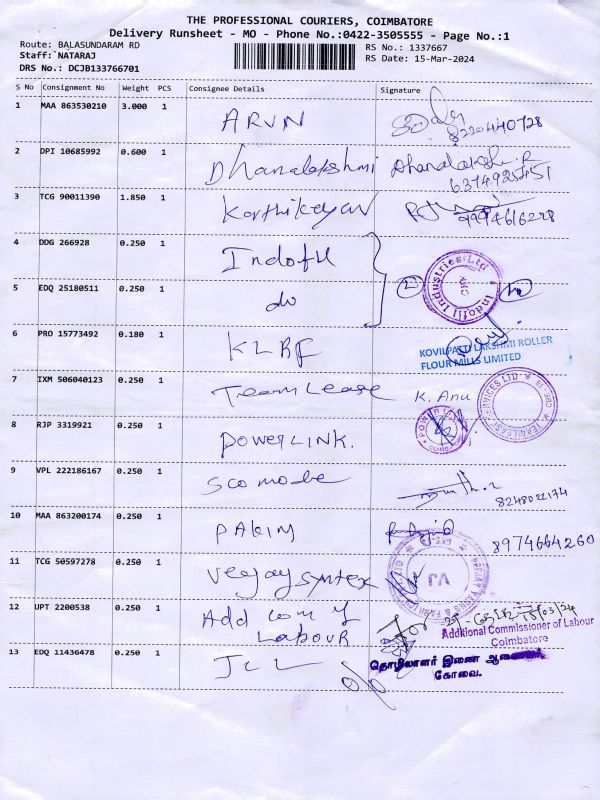 THE PROFESSIONAL COURIERS, COIMBATORE
Delivery Runsheet - MO - Phone No.:0422-3505555 - Page No.:1
Route: BALASUNDARAM RD
Staff: NATARAJ
DRS No.: DCJB133766701
RS No.: 1337667
RS Date: 15-Mar-2024
S No Consignment No Weight PCS Consignee Details Signature
1 MAA 863530210 3.000 1 ARUN
8220440728
2 DPI 10685992 0.600 1 Dhanalakshmi
6374925451
3 TCG 90011390 1.850 1 Karthikeyan
9994616228
4 DDG 266928 0.250 1 Indofil
5 EDQ 25180511 0.250 1 do
2
Indofil Industries Ltd
6 PRO 15773492 0.180 1 KLRF
KOVILPATTI LAKSHMI ROLLER
FLOUR MILLS LIMITED
7 IXM 506040123 0.250 1 TeamLease K. Anu
8 RJP 3319921 0.250 1 POWERLINK.
9 VPL 222186167 0.250 1
8248022174
10 MAA 863200174 0.250 1
8974664260
11 TCG 50597278 0.250 1 Veejay Syntex
VJ
12 UPT 2200538 0.250 1 Add Com of
Labour
For
Additional Commissioner of Labour
Coimbatore
13 EDQ 11436478 0.250 1 JLL
தொழிலாளர் இணை ஆணையர்
கோவை.